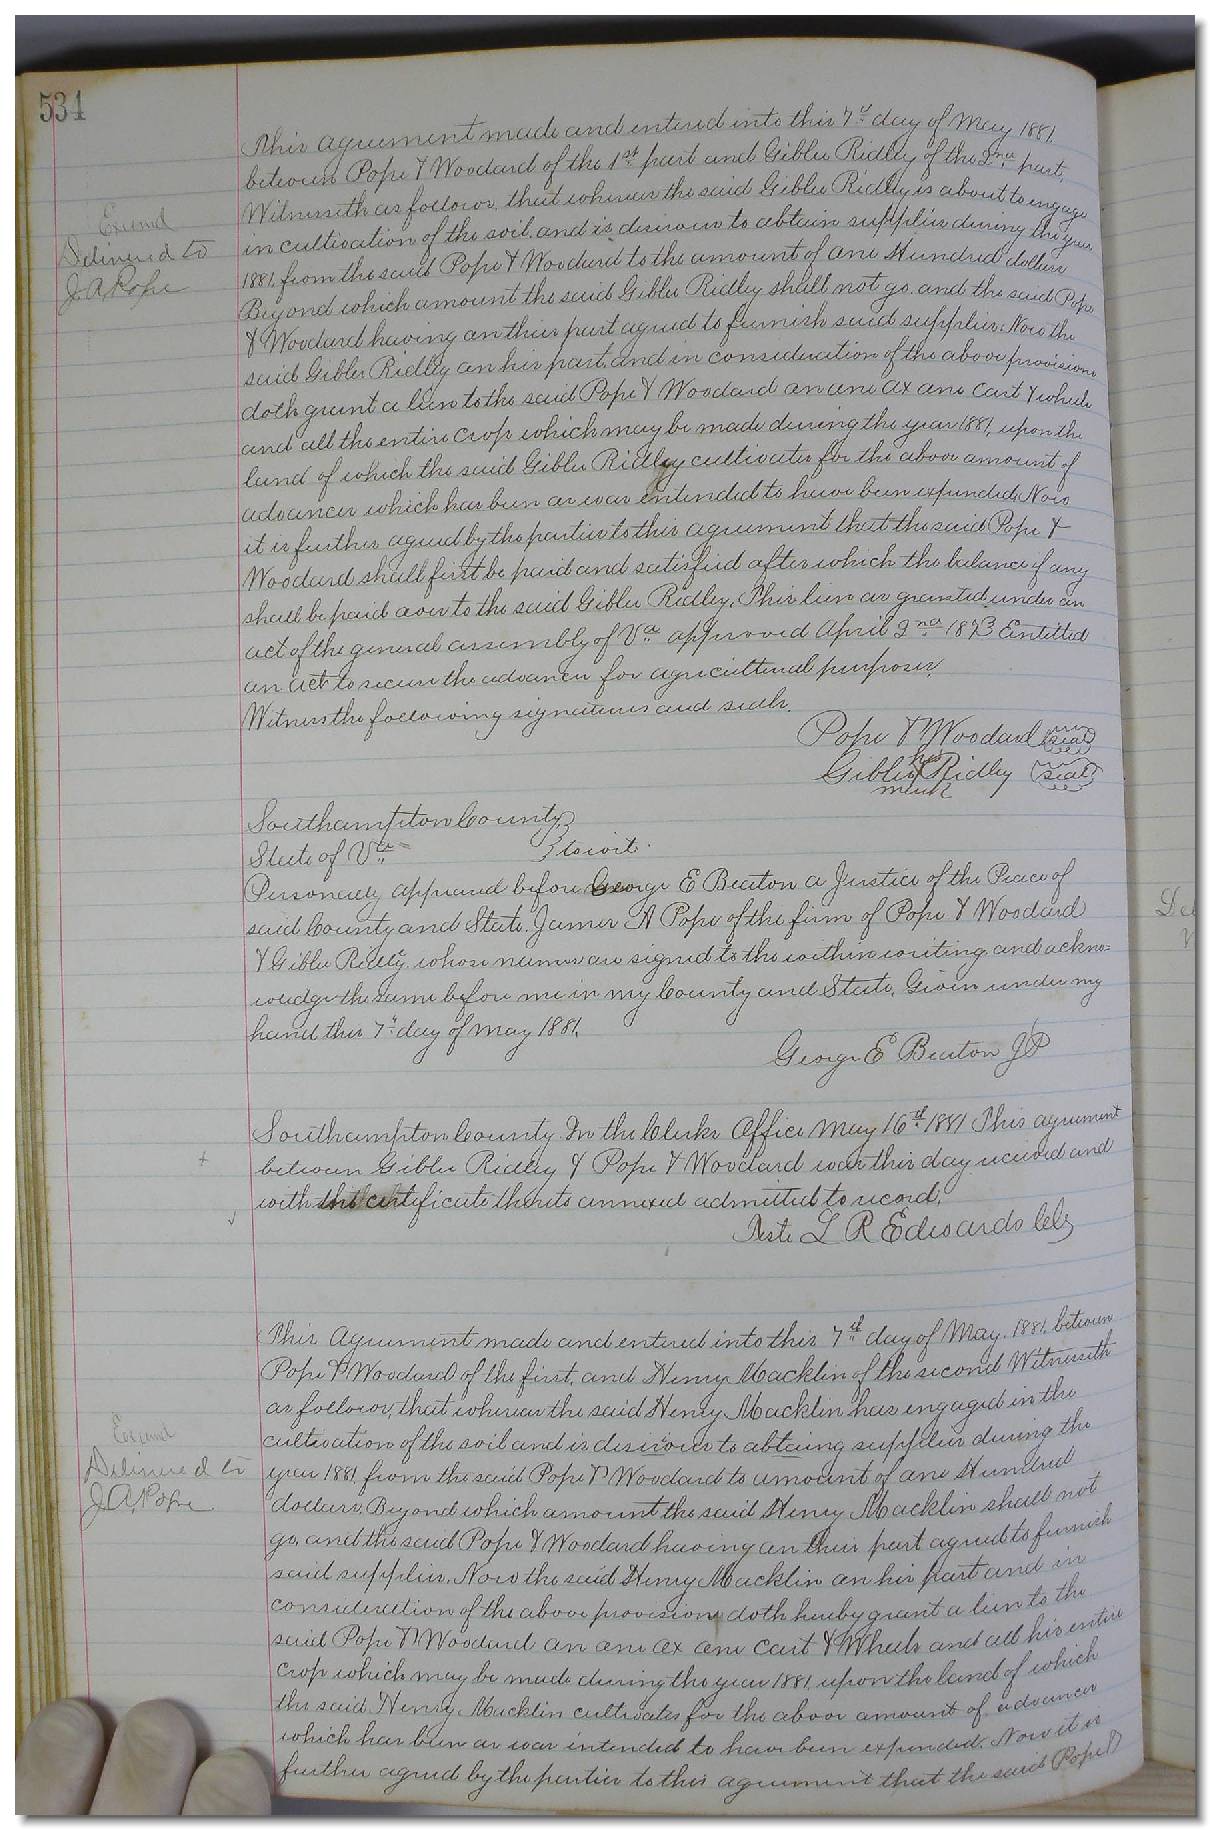 534
This agreement made and entered into this 7th day of May 1881.
between Pope & Woodard of the 1st part and Gibbie Ridley of the 2nd part,
Witnesseth as follows, that whereas the said Gibbie Ridley is about to engage
in cultivation of the soil and is desirous to obtain supplies during the year
1881, from the said Pope & Woodard to the amount of one Hundred dollars
Beyond which amount the said Gibbie Ridley shall not go, and the said Pope
& Woodard having on their part agreed to furnish said supplies. Now the
said Gibbie Ridley on his part, and in consideration of the above provisions
doth grant a lien to the said Pope & Woodard on one ox one cart & wheels
and all the entire crop which may be made during the year 1881, upon the
land of which the said Gibbie Ridley cultivates for the above amount of
advances which has been or was intended to have been expended. Now
it is further agreed by the parties to this agreement that the said Pope &
Woodard shall first be paid and satisfied after which the balance if any
shall be paid over to the said Gibbie Ridley. This lien as granted under an
act of the general assembly of Va approved April 2nd 1873 Entitled
an act to secure the advances for agricultural purposes.
Witness the following signatures and seals.
Pope & Woodard (seal)
his
Gibbie X Ridley (seal)
mark
Southampton County }
State of Va } to wit.
Personally appeared before George E Beaton a Justice of the Peace of
said County and State, James A Pope of the firm of Pope & Woodard
& Gibbie Ridley, whose names are signed to the within writing and ackno-
wledge the same before me in my County and State. Given under my
hand this 7th day of May 1881.
George E Beaton JP
Southampton County In the Clerks Office May 16th 1881 This agreement
between Gibbie Ridley & Pope & Woodard was this day received and
with the certificate thereto annexed admitted to record,
Teste L R Edwards Clk
Examd
Delivered to
J. A. Pope
This Agreement made and entered into this 7th day of May. 1881. between
Pope & Woodard of the first, and Henry Macklin of the second Witnesseth
as follows, that whereas the said Henry Macklin has engaged in the
cultivation of the soil and is desirous to abtaing supplies during the
year 1881 from the said Pope & Woodard to amount of one Hundred
dollars. Beyond which amount the said Henry Macklin shall not
go, and the said Pope & Woodard having on their part agreed to furnish
said supplies. Now the said Henry Macklin on his part and in
consideration of the above provisions doth hereby grant a lien to the
said Pope & Woodard on one ox one cart & Wheels and all his entire
crop which may be made during the year 1881, upon the land of which
the said Henry Macklin cultivates for the above amount of advances
which has been or was intended to have been expended. Now it is
further agreed by the parties to this agreement that the said Pope &
Examd
Delivered to
J. A. Pope